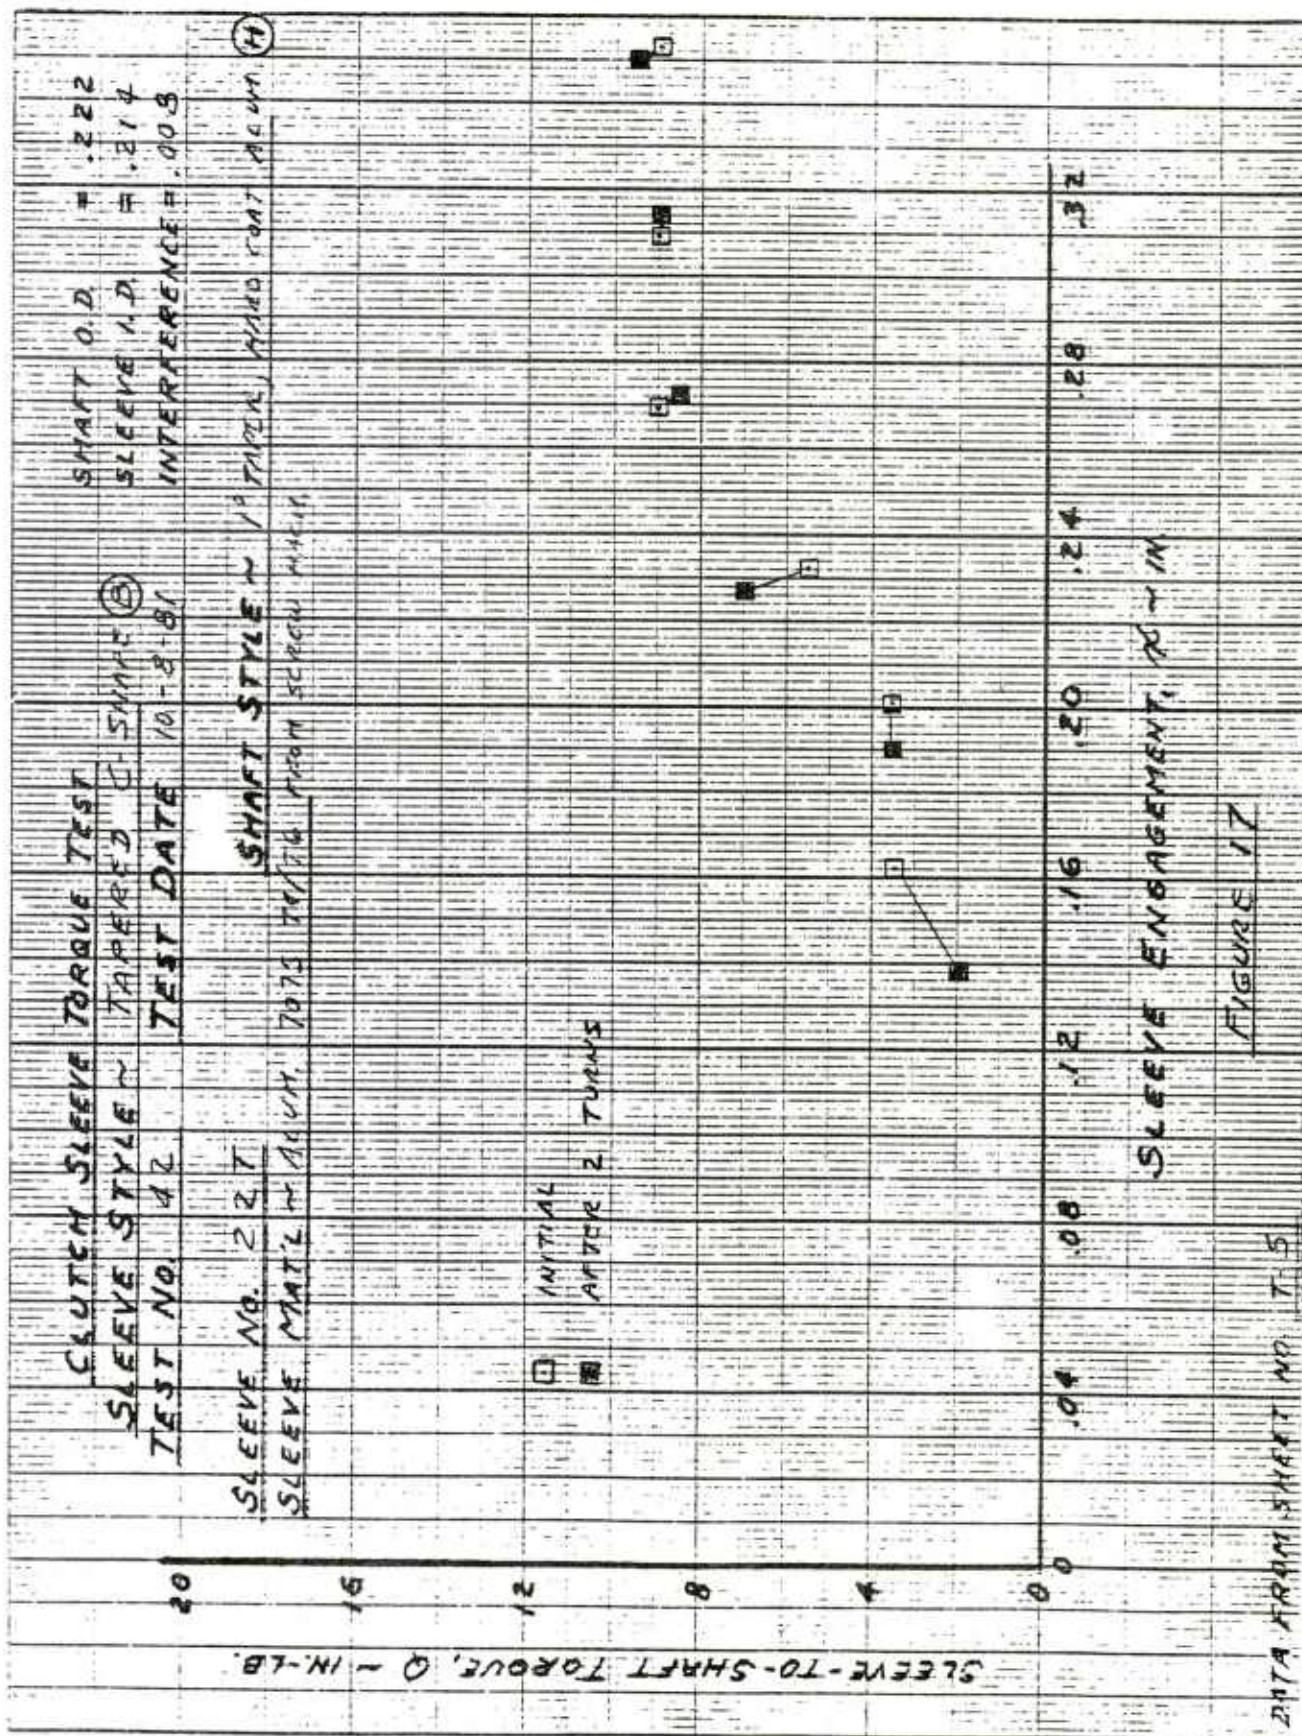 CLUTCH SLEEVE TORQUE TEST
SLEEVE STYLE ~ TAPERED C-SHAPE (B)
TEST NO. 42 TEST DATE 10-8-81
SHAFT O.D. = .222
SLEEVE I.D. = .214
INTERFERENCE = .008
SLEEVE NO. 22T
SHAFT STYLE ~ 1° TAPER, HARD COAT ALUM. (H)
SLEEVE MAT'L ~ ALUM. 7075 FROM SCREW MACH.
INITIAL
AFTER 2 TURNS
SLEEVE-TO-SHAFT TORQUE, Q ~ IN.-LB.
20
16
12
8
4
0
0 .04 .08 .12 .16 .20 .24 .28 .32
SLEEVE ENGAGEMENT, X ~ IN.
FIGURE 17
DATA FROM SHEET NO. T-5